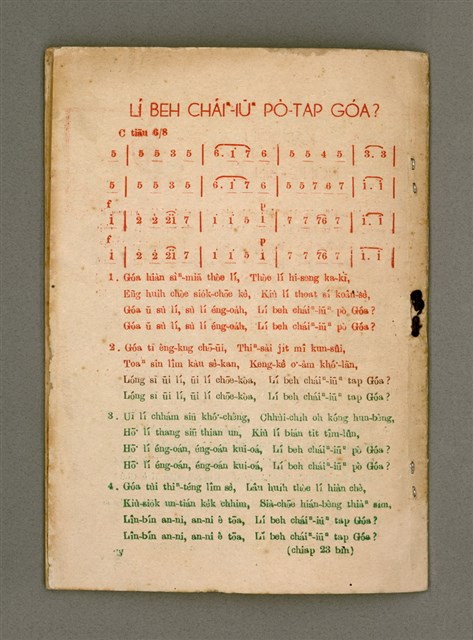 LÍ BEH CHÁIⁿ-IŪⁿ PÒ-TAP GÓA?
C tiāu 6/8
5 | 5 5 3 5 | 6. 1 7 6 | 5 5 4 5 | 3. 3 |
5 | 5 5 3 5 | 6. 1 7 6 | 5 5 7 6 7 | i. i |
f p
i | 2 2 2i 7 | i i 5 i | 7 7 76 7 | i. i |
f p
i | 2 2 2i 7 | i i 5 i | 7 7 76 7 | i. i |
1. Góa hiàn sìⁿ-miā thòe lí, Thòe lí hi-seng ka-kī,
Eñg huih chōe siók-chōe kè, Kiù lí thoat sí koân-sè,
Góa ū sù lí, sù lí éng-oa̍h, Lí beh cháiⁿ-iūⁿ pò Góa?
Góa ū sù lí, sù lí éng-oa̍h, Lí beh cháiⁿ-iūⁿ pò Góa?
2. Góa tī èng-kng chō-ūi, Thiⁿ-sài jit mî kun-sûi,
Toaⁿ sin lîm kàu sè-kan, Keng-kè o͘-àm khó͘-lān,
Lóng sī ūi lí, ūi lí chōe-kòa, Lí beh cháiⁿ-iūⁿ tap Góa?
Lóng sī ūi lí, ūi lí chōe-kòa, Lí beh cháiⁿ-iūⁿ tap Góa?
3. Ūi lí chhám siū khó͘-chhông, Chhùi-chih oh kóng hun-bêng,
Hō͘ lí thang siū thian un, Kiù lí bián tit tîm-lûn,
Hō͘ lí éng-oán, éng-oán kui-oá, Lí beh cháiⁿ-iūⁿ pò Góa?
Hō͘ lí éng-oán, éng-oán kui-oá, Lí beh cháiⁿ-iūⁿ pò Góa?
4. Góa tùi thiⁿ-téng lîm sè, Lâu huih thòe lí hiàn chè,
Kiù-siók un-tián ke̍k chhim, Sià-chōe hián-bêng thiàⁿ sim,
Lîn-bín an-ni, an-ni ê tōa, Lí beh cháiⁿ-iūⁿ tap Góa?
Lîn-bín an-ni, an-ni ê tōa, Lí beh cháiⁿ-iūⁿ tap Góa?
(chiap 23 bīn)